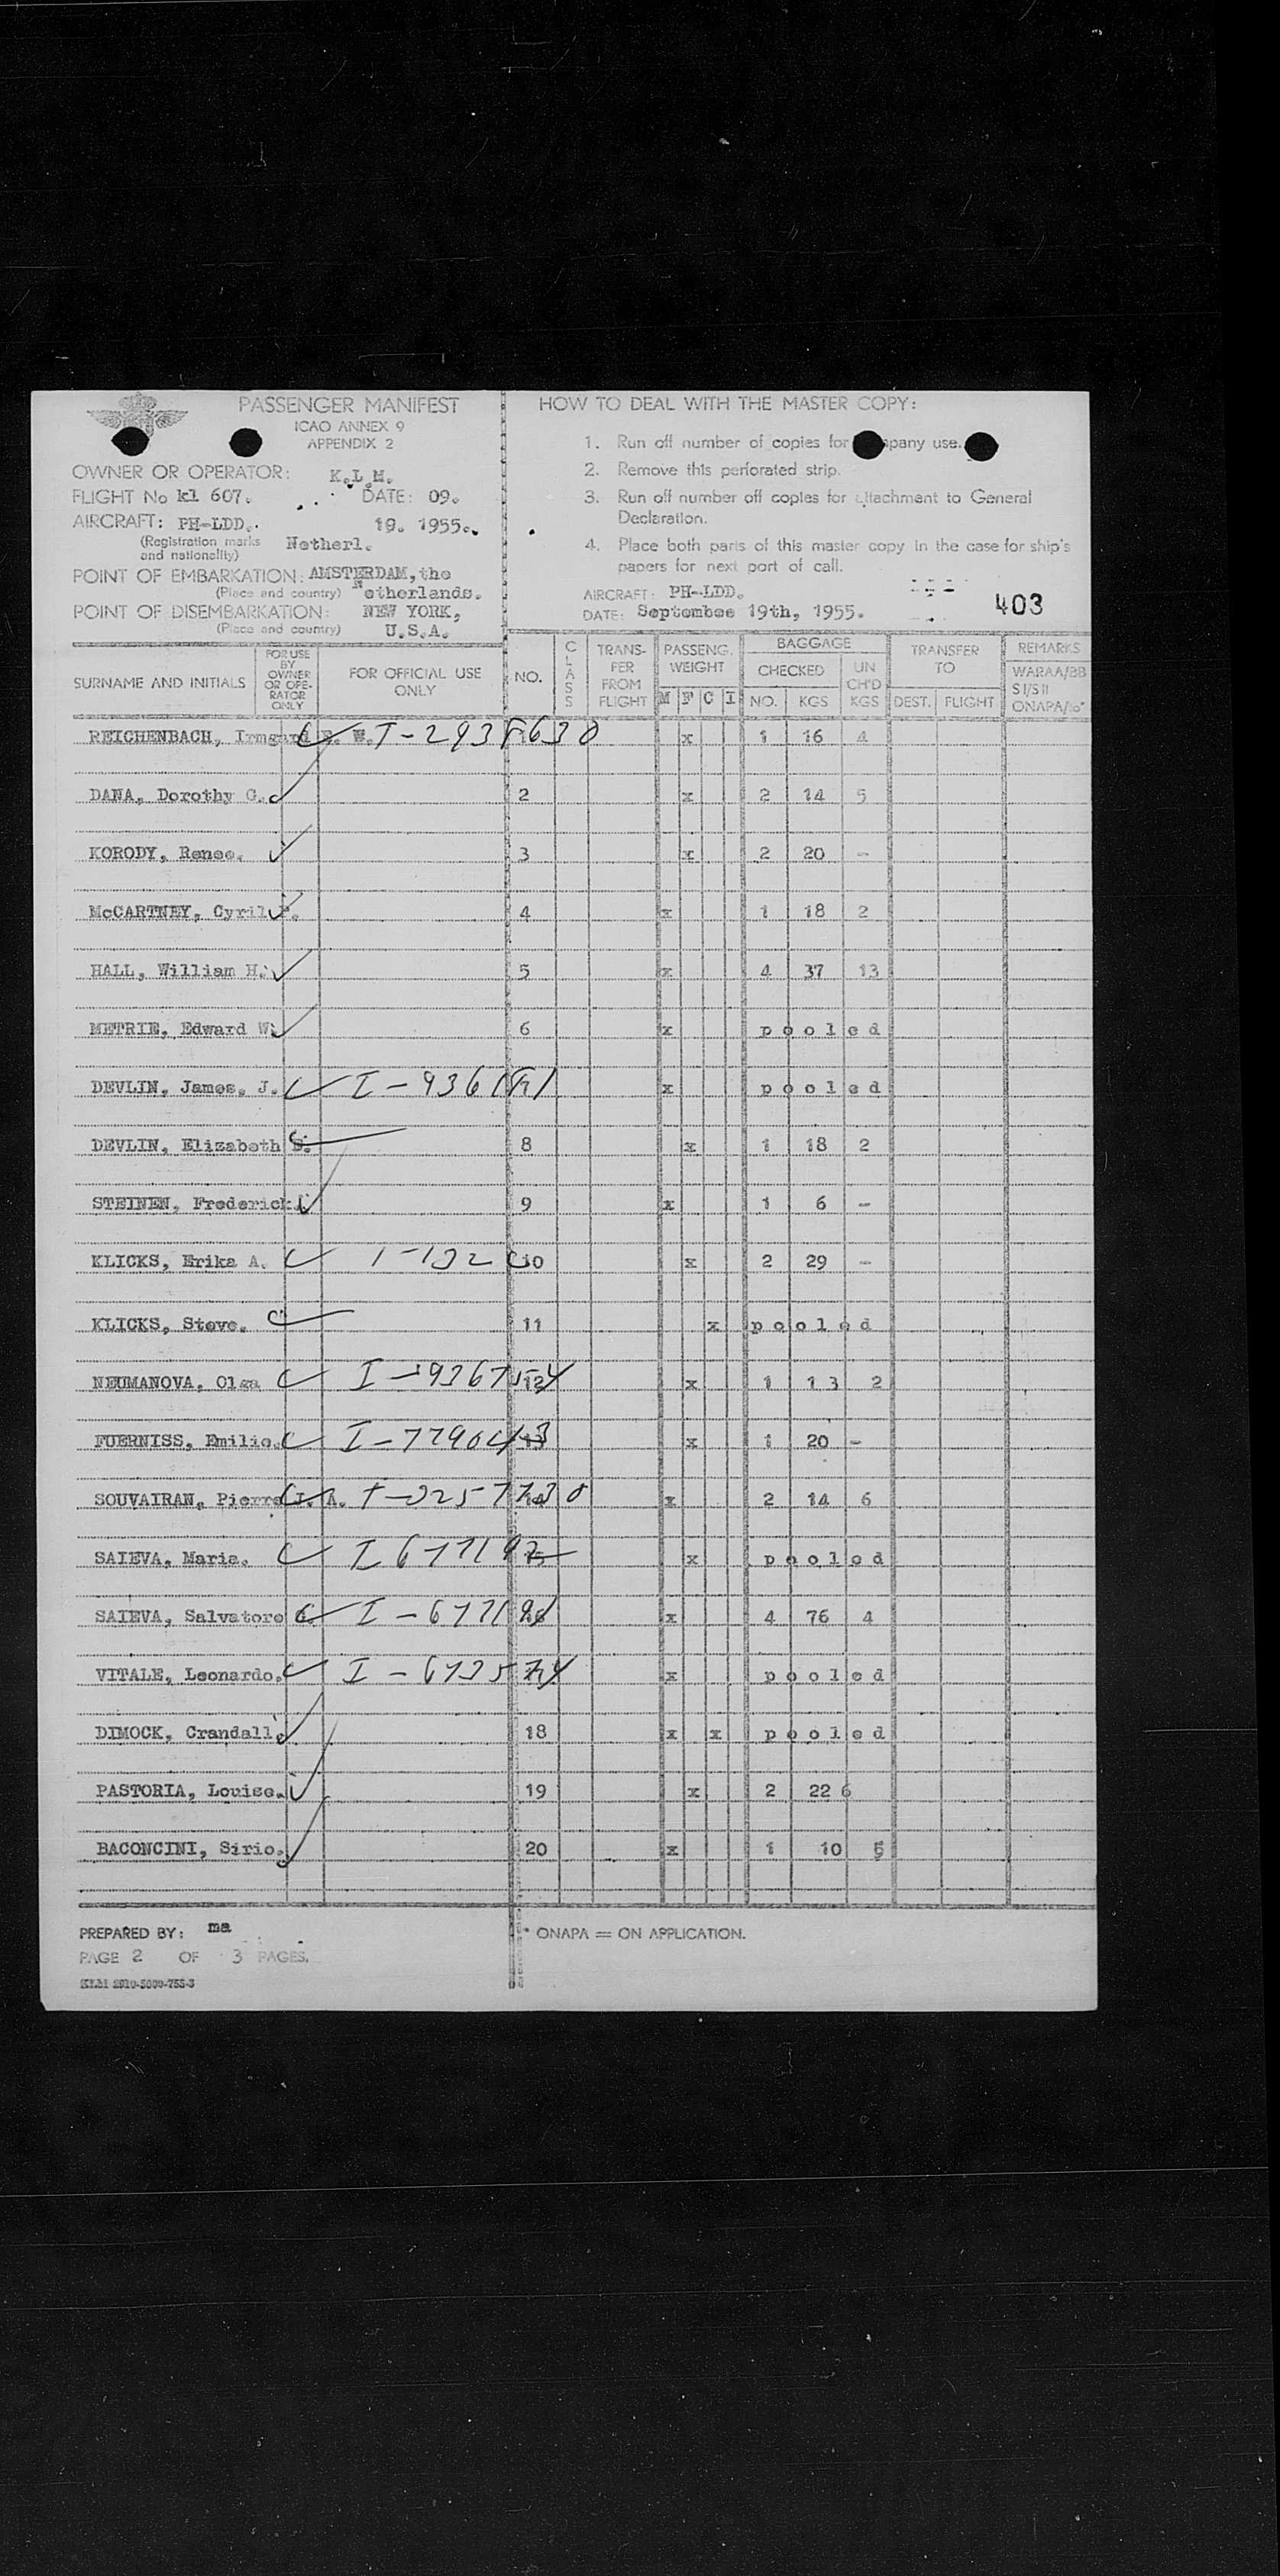 PASSENGER MANIFEST
ICAO ANNEX 9
APPENDIX 2
OWNER OR OPERATOR: K.L.M.
FLIGHT No kl 607. DATE: 09.
AIRCRAFT: PH-LDD. 19. 1955.
(Registration marks and nationality) Netherl.
POINT OF EMBARKATION: AMSTERDAM, the
(Place and country) Netherlands.
POINT OF DISEMBARKATION: NEW YORK,
(Place and country) U.S.A.
HOW TO DEAL WITH THE MASTER COPY:
1. Run off number of copies for company use.
2. Remove this perforated strip.
3. Run off number off copies for attachment to General
Declaration.
4. Place both parts of this master copy in the case for ship's
papers for next port of call.
AIRCRAFT: PH-LDD.
DATE: Septembee 19th, 1955.
403
SURNAME AND INITIALS FOR USE BY OWNER OR OPE-RATOR ONLY FOR OFFICIAL USE ONLY NO. CLASS TRANS-FER FROM FLIGHT PASSENG. WEIGHT M F C I BAGGAGE CHECKED NO. KGS UN CH'D KGS TRANSFER TO DEST. FLIGHT REMARKS WARAA/BB S I/S II ONAPA/
REICHENBACH, Irmgard E. W. x 1 16 4
DANA, Dorothy C. 2 x 2 14 5
KORODY, Renee. 3 x 2 20 -
McCARTNEY, Cyril P. 4 x 1 18 2
HALL, William H. 5 x 4 37 13
METRIE, Edward W. 6 x pooled
DEVLIN, James, J. x pooled
DEVLIN, Elizabeth S. 8 x 1 18 2
STEINEN, Frederick. 9 x 1 6 -
KLICKS, Erika A. 10 x 2 29 -
KLICKS, Steve. 11 x pooled
NEUMANOVA, Olga I-936 12 x 1 13 2
FUERNISS, Emilie. I-77904 x 1 20 -
SOUVAIRAN, Pierre J. A. x 2 14 6
SAIEVA, Maria. x pooled
SAIEVA, Salvatore x 4 76 4
VITALE, Leonardo. x pooled
DIMOCK, Crandall. 18 x x pooled
PASTORIA, Louise. 19 x 2 22 6
BACONCINI, Sirio. 20 x 1 10 5
PREPARED BY: ma
PAGE 2 OF 3 PAGES.
* ONAPA = ON APPLICATION.